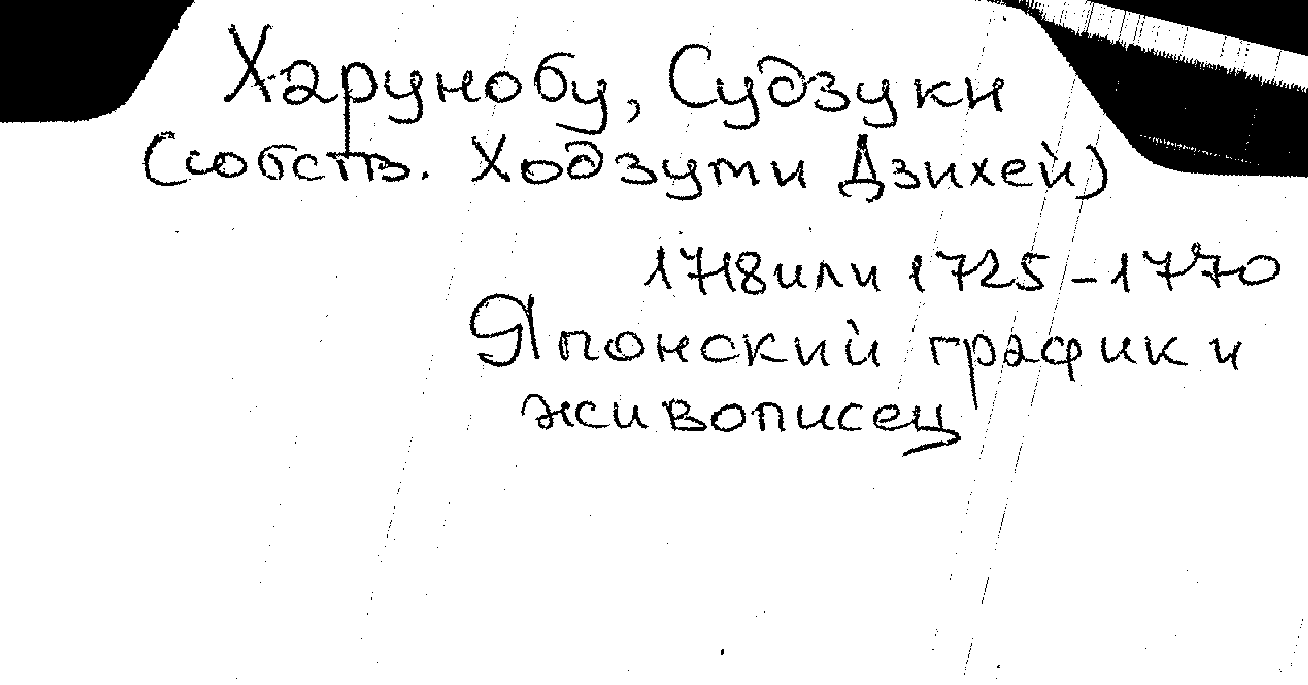 Харунобу, Судзуки
(собств. Ходзути Дзихей)
1718 или 1725 - 1770
Японский график и
живописец